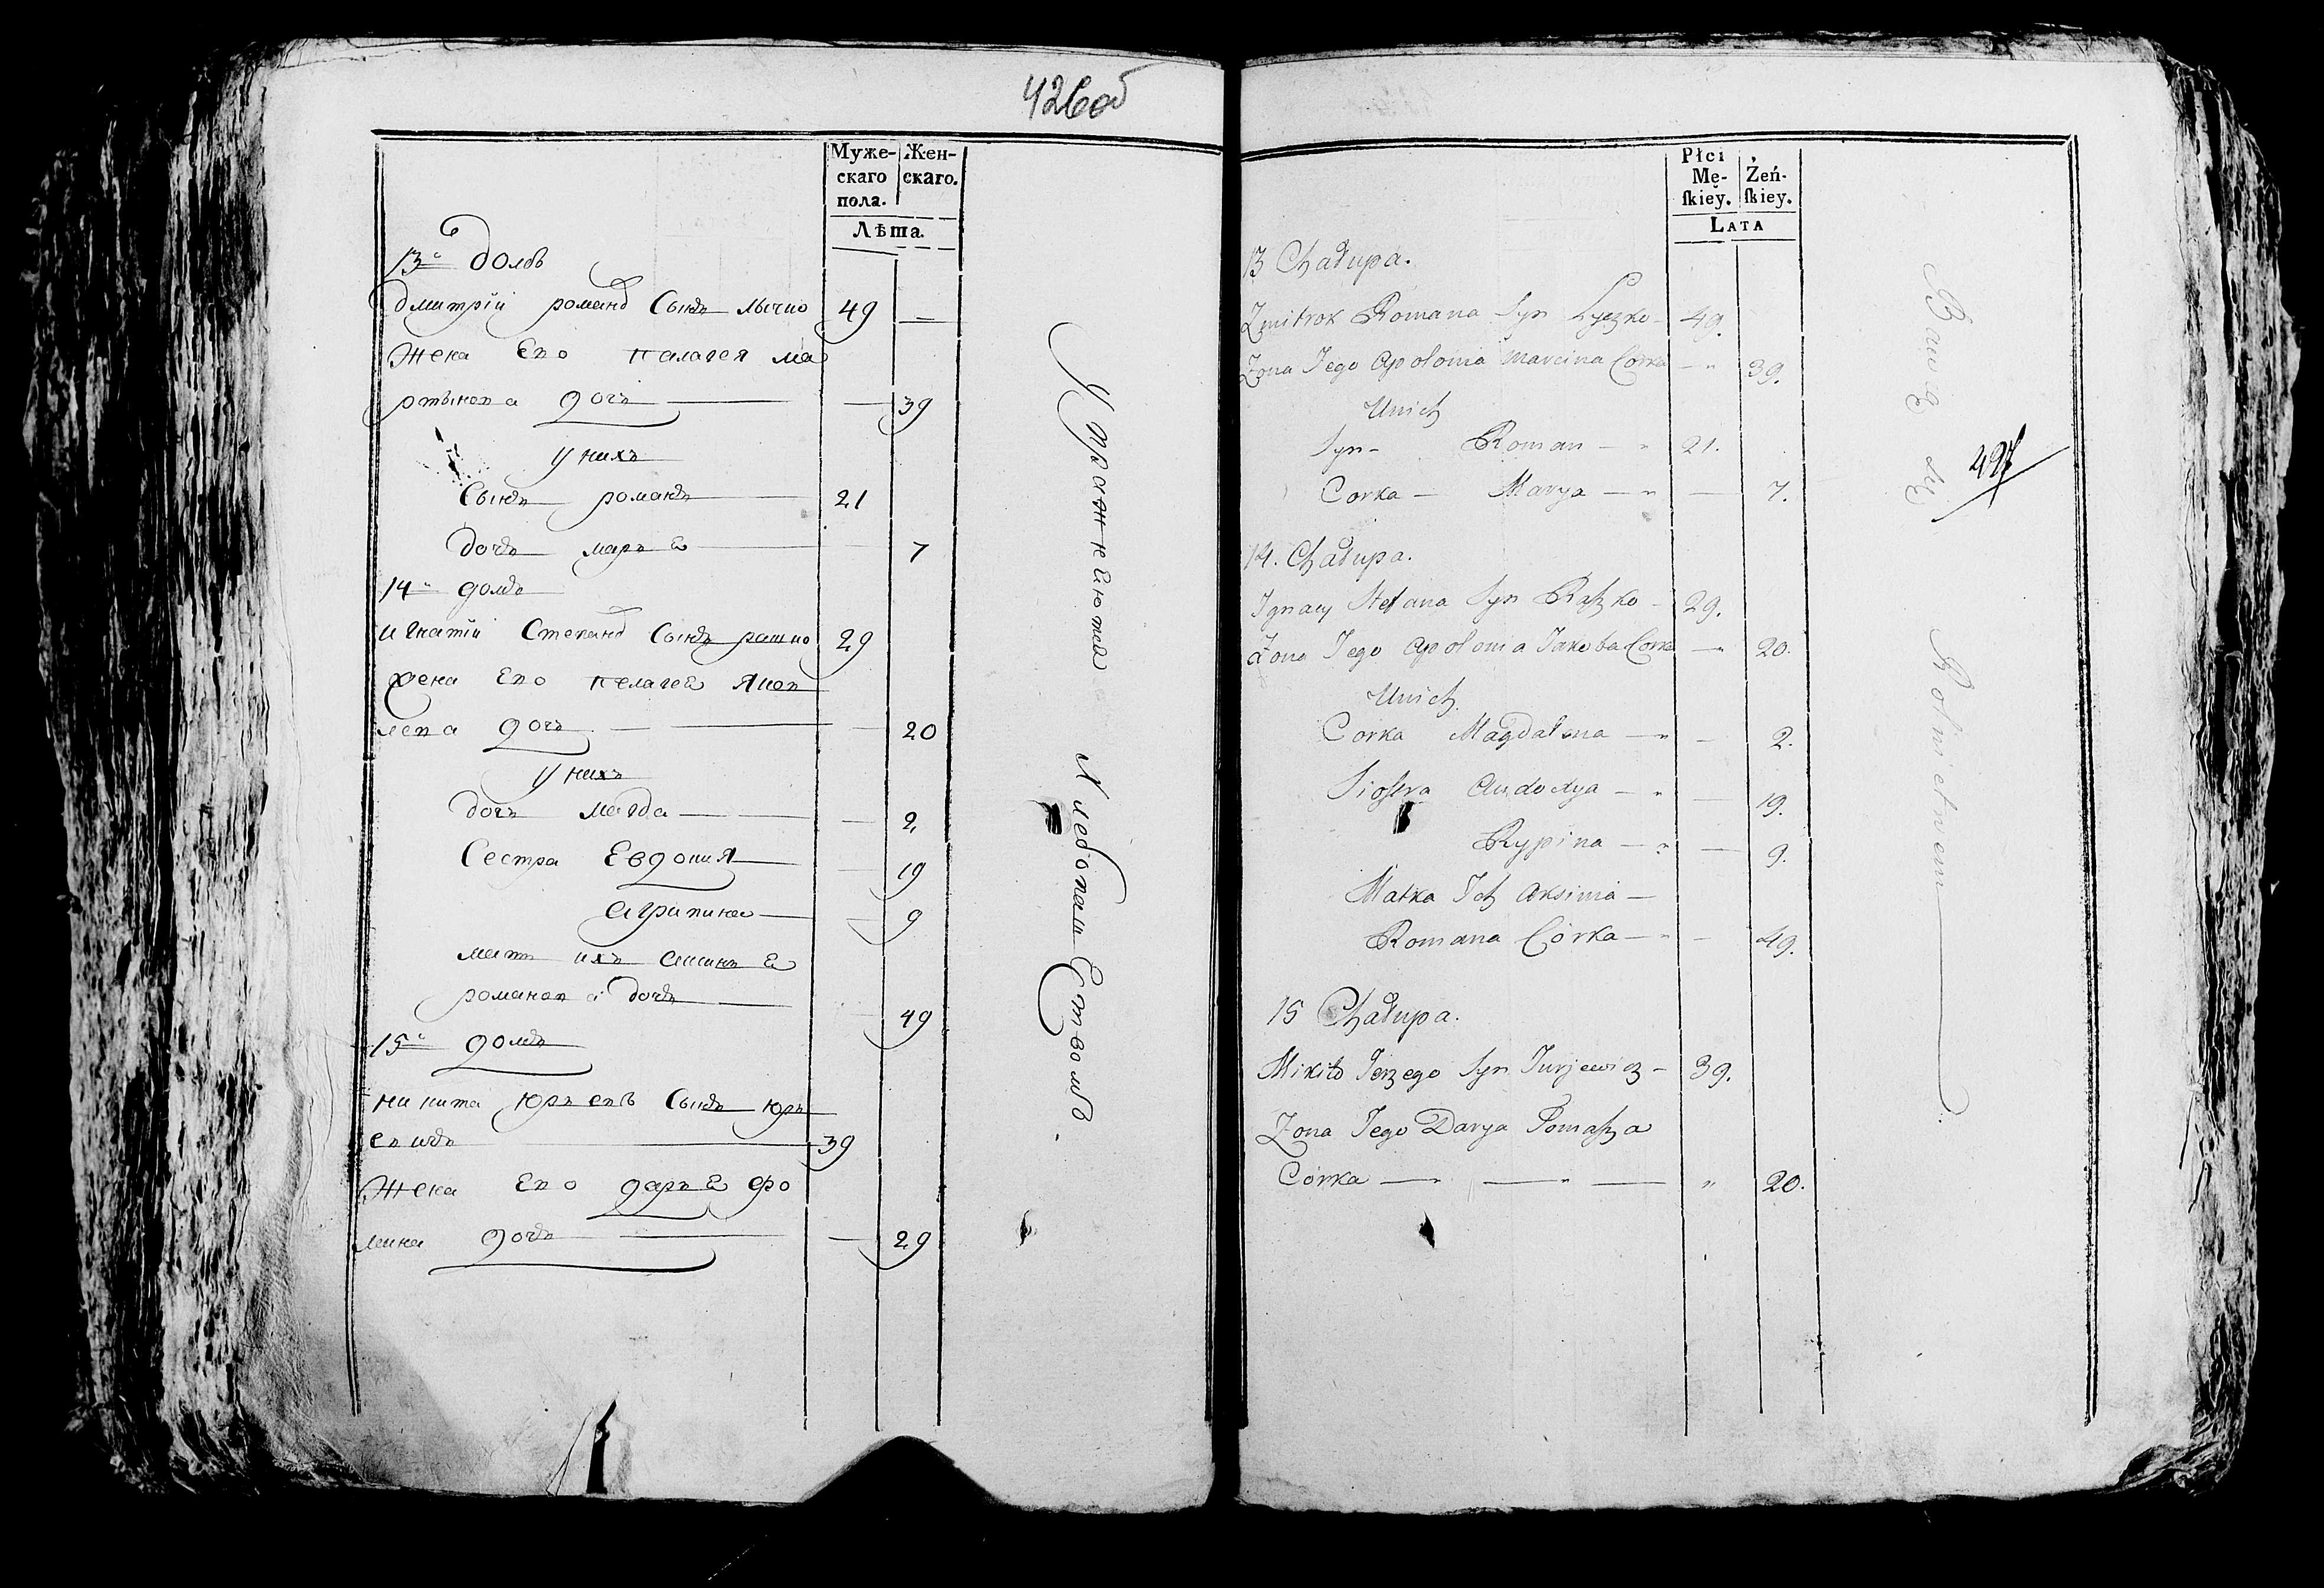 426об
Муже- Жен-
скаго скаго.
пола.
Лѣта.
13й домъ
Дмитрій романъ Сынъ лычко 49 —
Жена Его пелагея ма
ртынова дочь — 39
у нихъ
Сынъ романъ 21
дочь марья — 7
14й домъ
игнатій Степанъ Сынъ рашко 29
жена Его пелагея Яков
лева дочь — 20
у нихъ
дочь магда — 2
Сестра Евдокия — 19
агрипина — 9
мать ихъ аксинья
романова дочь — 49
15й домъ
никита Юрьевъ Сынъ юрь
евичъ 39
Жена Его дарья фо
мина дочь — 29
Упражняются Хлебопашеством.
Płci Żeń-
Mę- skiey.
skiey.
LATA
13 Chałupa.
Zmitrok Romana Syn Łyczko - 49.
Żona Jego Apolonia Marcina Corka — 39.
Unich
Syn - Roman — 21.
Corka — Marya — 7.
14. Chałupa.
Ignacy Stefana Syn Raszko - 29.
Żona Jego Apolonia Jakoba Corka — 20.
Unich.
Corka Magdalena — 2.
Siostra Audodya — 19.
Rypina — 9.
Matka Ich Aksinia —
Romana Córka — 49.
15 Chałupa.
Mikito Jerzego Syn Jurjewicz - 39.
Żona Jego Darya Tomasza
Córka — 20.
Bawią się Rolnictwem
427